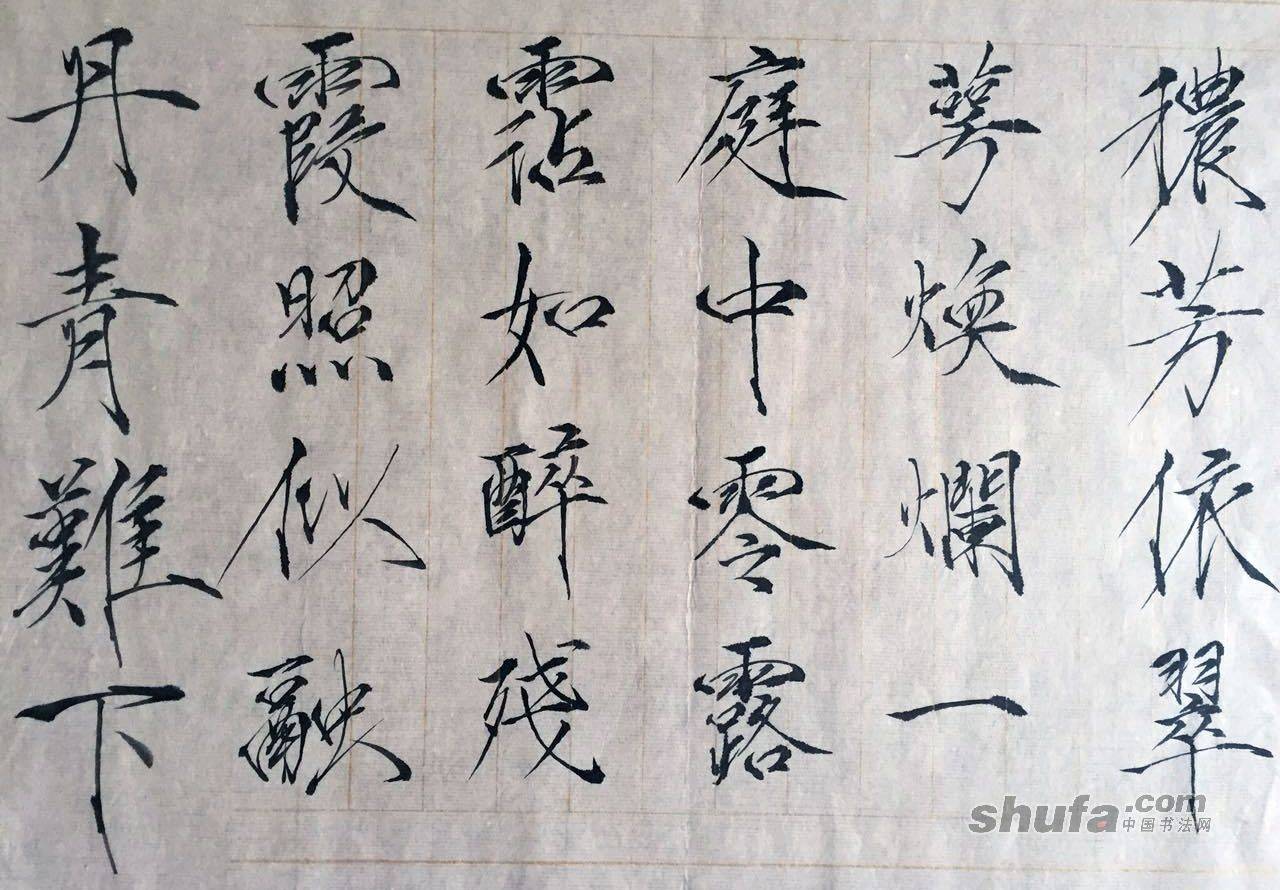 穠芳依翠
萼煥爛一
庭中零露
霑如醉殘
霞照似融
丹青難下
shufa.com
中国书法网